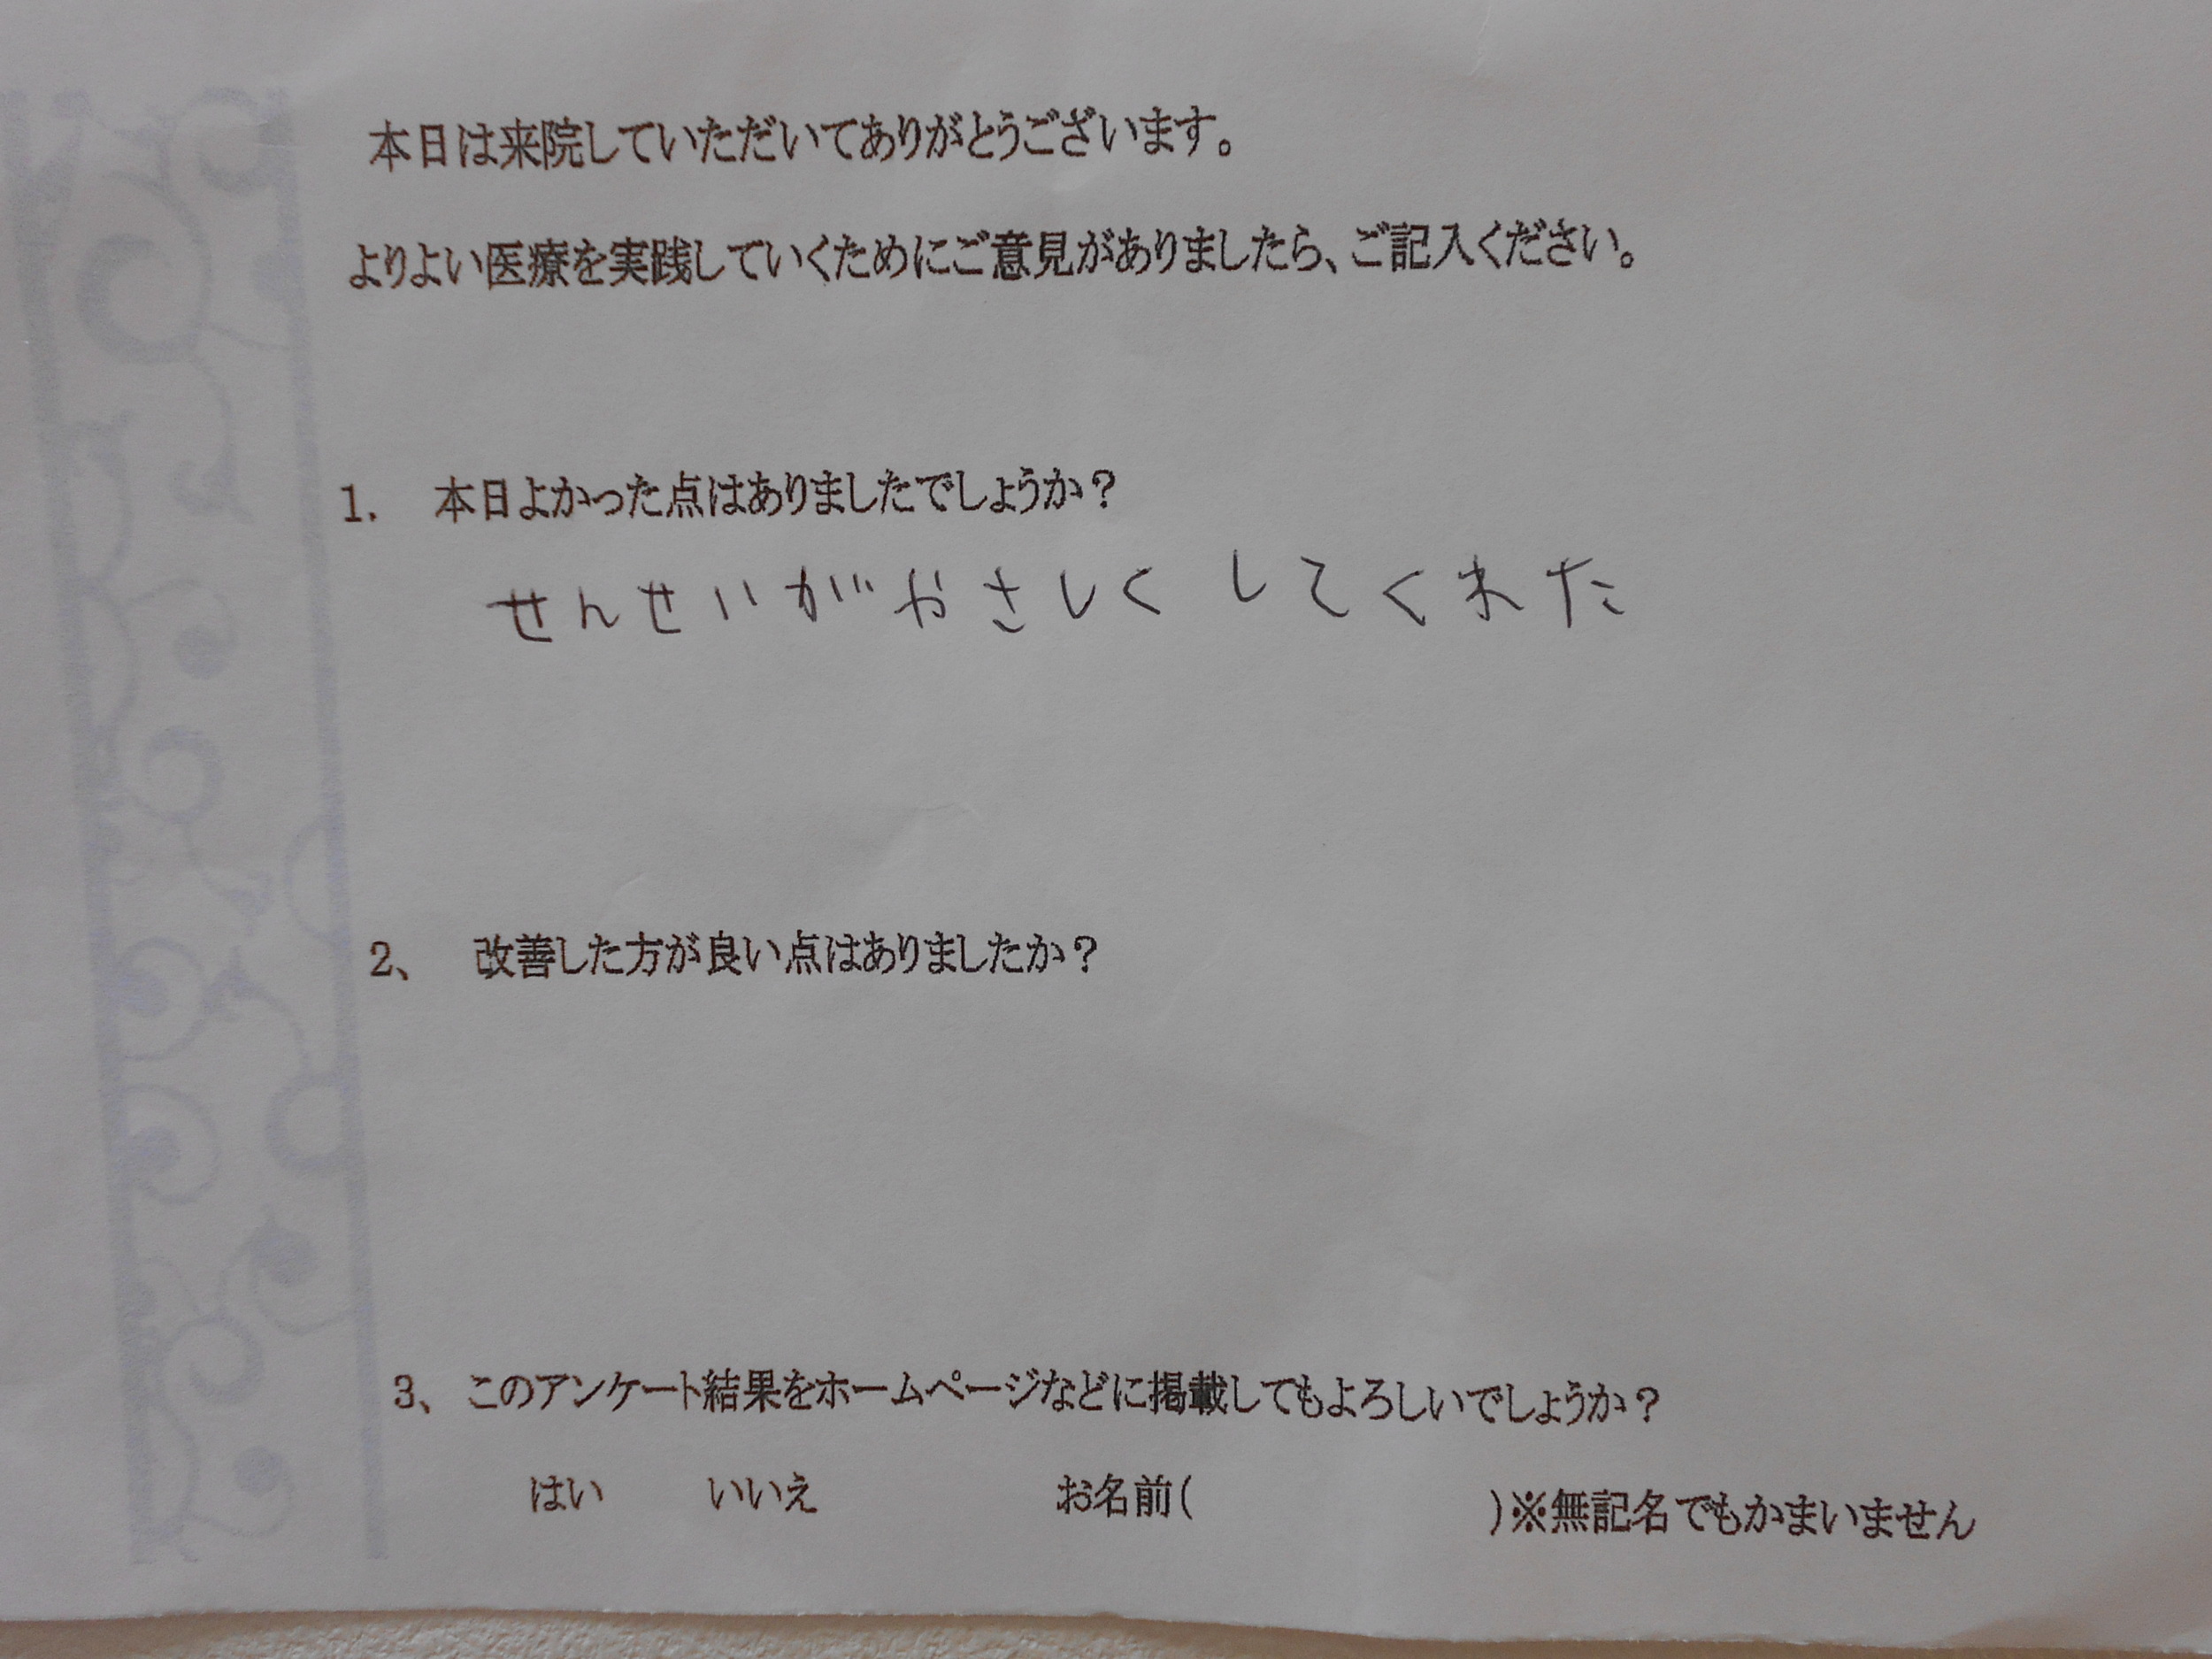 本日は来院していただいてありがとうございます。
よりよい医療を実践していくためにご意見がありましたら、ご記入ください。
1. 本日よかった点はありましたでしょうか?
せんせいがやさしく してくれた
2、 改善した方が良い点はありましたか?
3、このアンケート結果をホームページなどに掲載してもよろしいでしょうか?
はい いいえ お名前( )※無記名でもかまいません